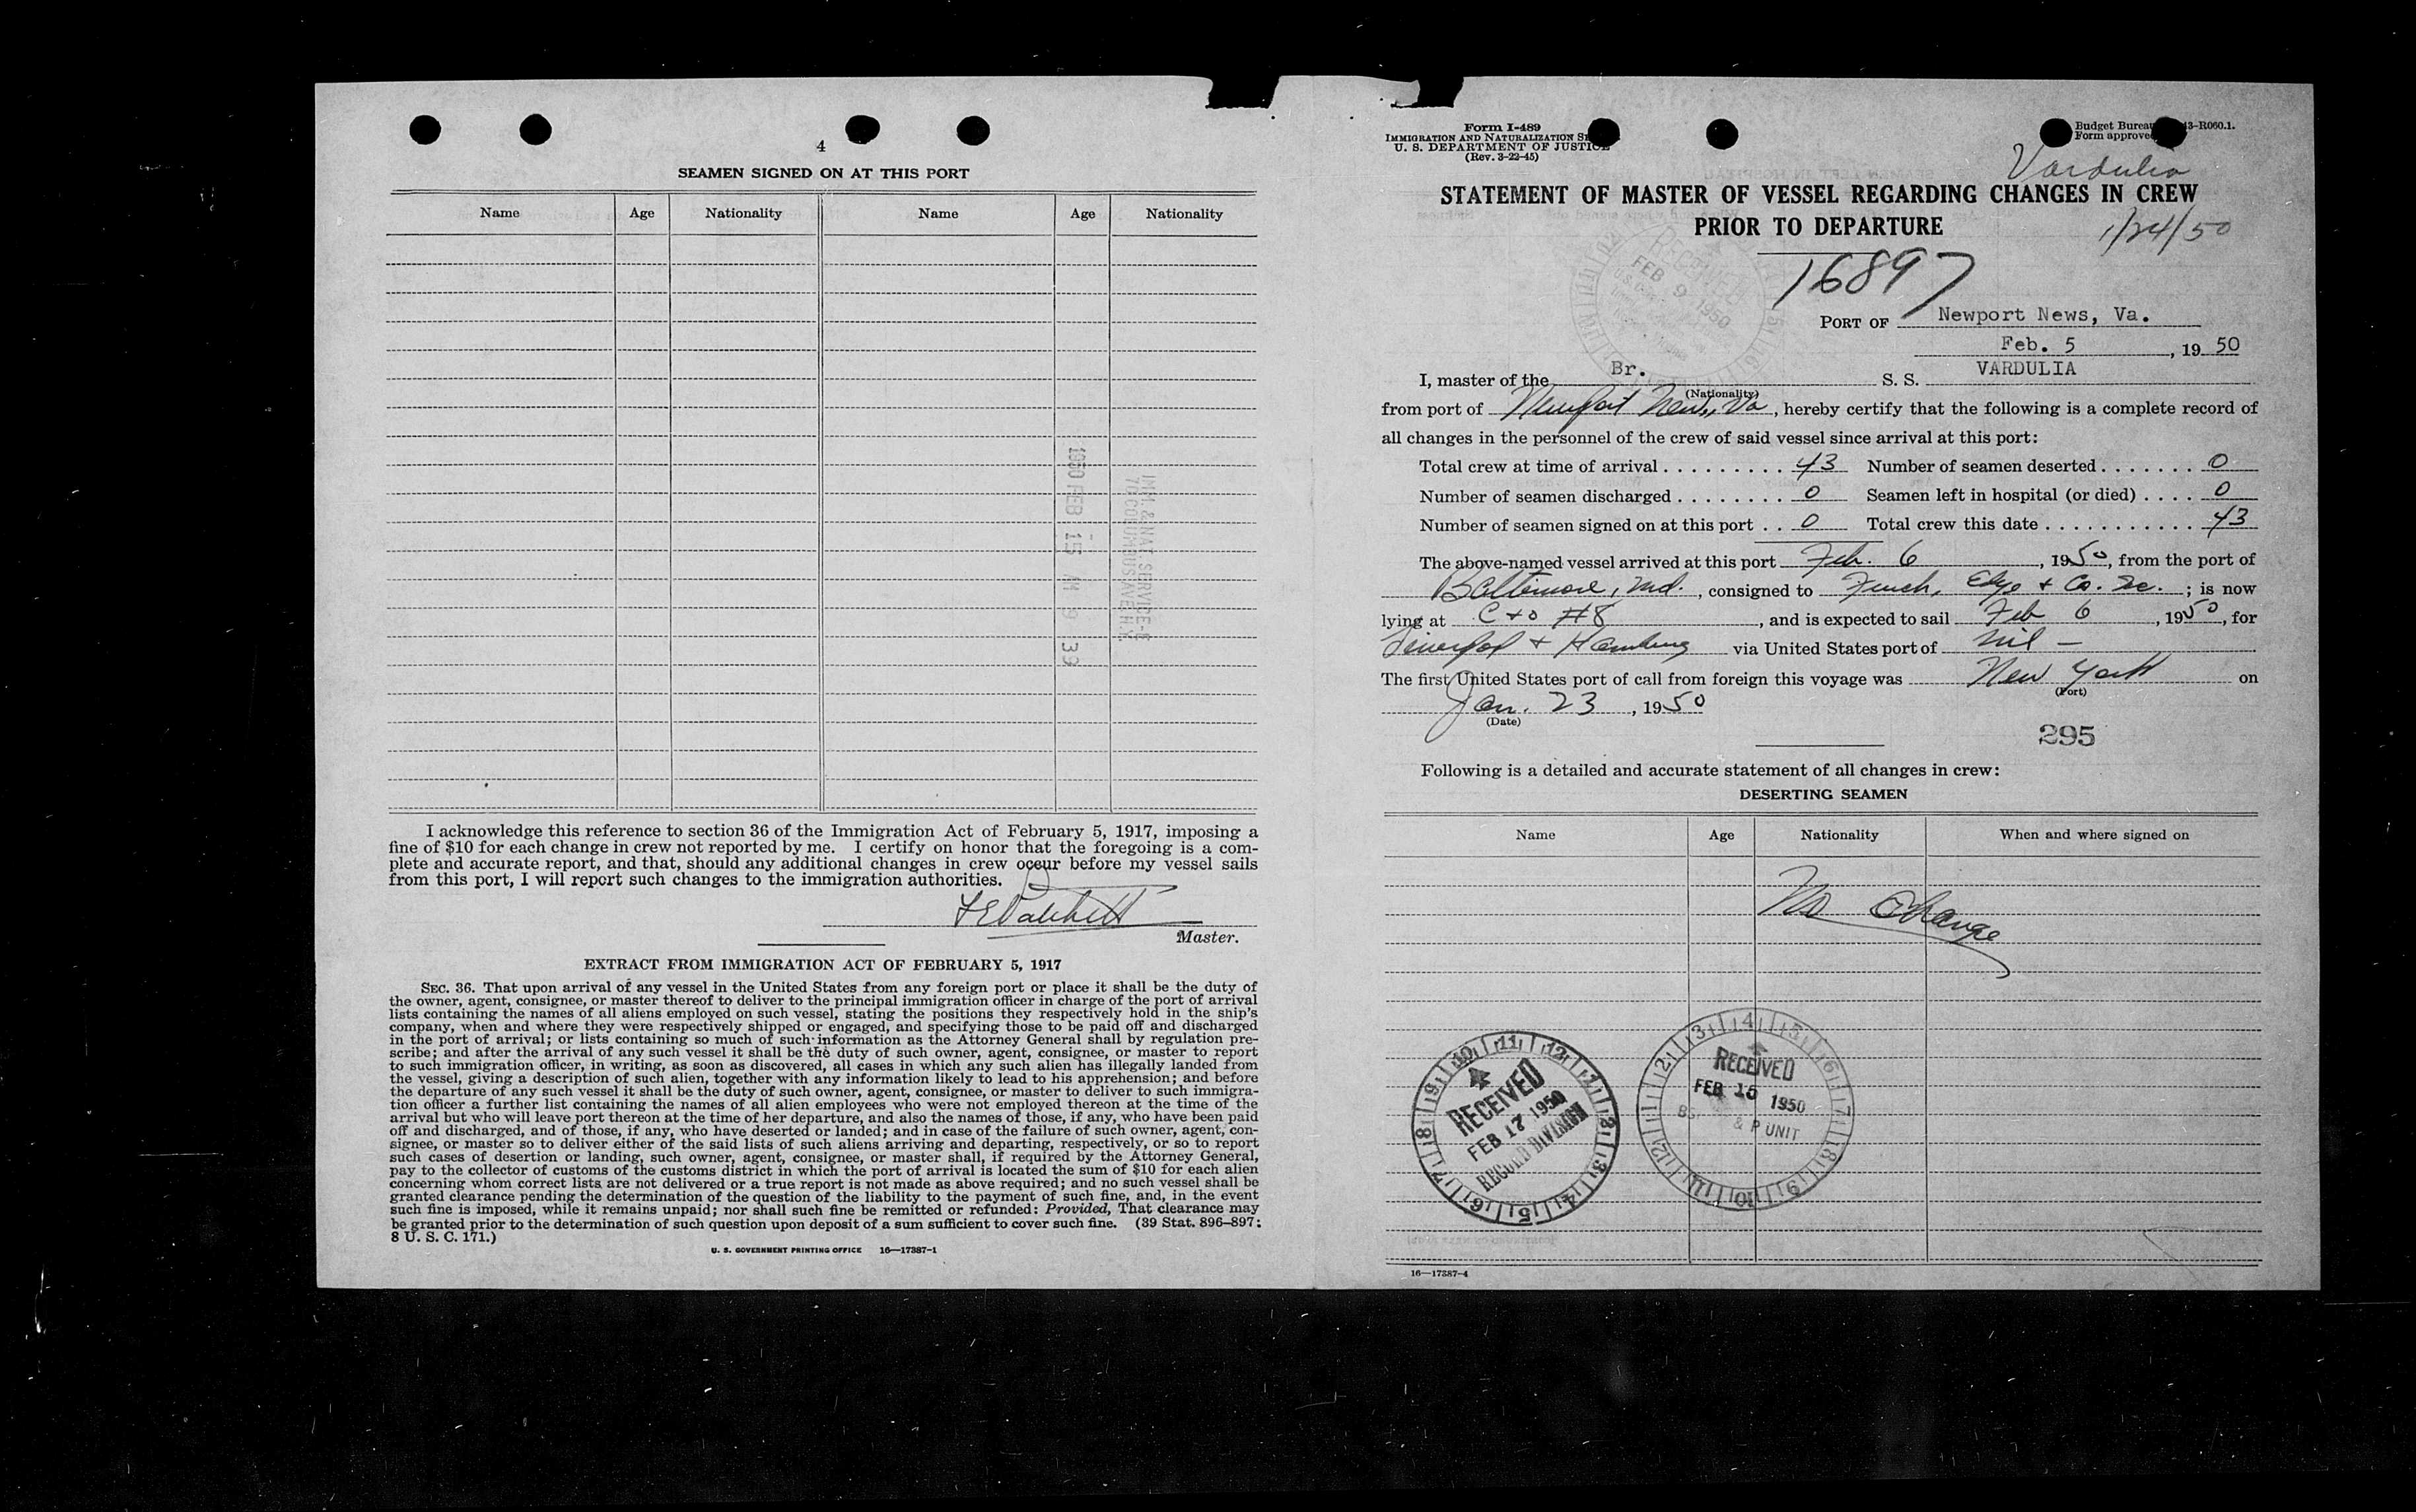 4
SEAMEN SIGNED ON AT THIS PORT
Name Age Nationality Name Age Nationality
1950 FEB 15 AM 9 39
IMM. & NAT. SERVICE-E
70 COLUMBUS AVE N.Y.
I acknowledge this reference to section 36 of the Immigration Act of February 5, 1917, imposing a
fine of $10 for each change in crew not reported by me. I certify on honor that the foregoing is a com-
plete and accurate report, and that, should any additional changes in crew occur before my vessel sails
from this port, I will report such changes to the immigration authorities.
Master.
EXTRACT FROM IMMIGRATION ACT OF FEBRUARY 5, 1917
SEC. 36. That upon arrival of any vessel in the United States from any foreign port or place it shall be the duty of
the owner, agent, consignee, or master thereof to deliver to the principal immigration officer in charge of the port of arrival
lists containing the names of all aliens employed on such vessel, stating the positions they respectively hold in the ship's
company, when and where they were respectively shipped or engaged, and specifying those to be paid off and discharged
in the port of arrival; or lists containing so much of such information as the Attorney General shall by regulation pre-
scribe; and after the arrival of any such vessel it shall be the duty of such owner, agent, consignee, or master to report
to such immigration officer, in writing, as soon as discovered, all cases in which any such alien has illegally landed from
the vessel, giving a description of such alien, together with any information likely to lead to his apprehension; and before
the departure of any such vessel it shall be the duty of such owner, agent, consignee, or master to deliver to such immigra-
tion officer a further list containing the names of all alien employees who were not employed thereon at the time of the
arrival but who will leave port thereon at the time of her departure, and also the names of those, if any, who have been paid
off and discharged, and of those, if any, who have deserted or landed; and in case of the failure of such owner, agent, con-
signee, or master so to deliver either of the said lists of such aliens arriving and departing, respectively, or so to report
such cases of desertion or landing, such owner, agent, consignee, or master shall, if required by the Attorney General,
pay to the collector of customs of the customs district in which the port of arrival is located the sum of $10 for each alien
concerning whom correct lists are not delivered or a true report is not made as above required; and no such vessel shall be
granted clearance pending the determination of the question of the liability to the payment of such fine, and, in the event
such fine is imposed, while it remains unpaid; nor shall such fine be remitted or refunded: Provided, That clearance may
be granted prior to the determination of such question upon deposit of a sum sufficient to cover such fine. (39 Stat. 896–897;
8 U. S. C. 171.)
U. S. GOVERNMENT PRINTING OFFICE 16—17387-1
Form I-489
IMMIGRATION AND NATURALIZATION
U. S. DEPARTMENT OF JUSTICE
(Rev. 3-22-45)
Budget Bureau 43-R060.1.
Form approved
Vardulia
STATEMENT OF MASTER OF VESSEL REGARDING CHANGES IN CREW
PRIOR TO DEPARTURE
1/24/50
16897
RECEIVED
FEB 9 1950
PORT OF Newport News, Va.
Feb. 5, 19 50
I, master of the Br. S. S. VARDULIA
(Nationality)
from port of Newport News, Va, hereby certify that the following is a complete record of
all changes in the personnel of the crew of said vessel since arrival at this port:
Total crew at time of arrival . . . . . . . . . 43 Number of seamen deserted . . . . . . . 0
Number of seamen discharged . . . . . . . . 0 Seamen left in hospital (or died) . . . . 0
Number of seamen signed on at this port . . 0 Total crew this date . . . . . . . . . . . 43
The above-named vessel arrived at this port Feb. 6, 1950, from the port of
Baltimore, Md., consigned to Funch, Edye & Co. Inc.; is now
lying at C & O #8, and is expected to sail Feb 6, 1950, for
Liverpool & Hamburg via United States port of nil –
The first United States port of call from foreign this voyage was New York on
(Port)
Jan. 23, 1950
(Date)
295
Following is a detailed and accurate statement of all changes in crew:
DESERTING SEAMEN
Name Age Nationality When and where signed on
No Change
RECEIVED
FEB 17 1950
RECORD DIVISION
RECEIVED
FEB 16 1950
& P UNIT
16—17387-4